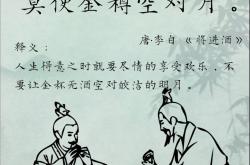 莫使金樽空对月。
唐·李白《将进酒》
释义：
人生得意之时就要尽情的享受欢乐，不
要让金杯无酒空对皎洁的明月。